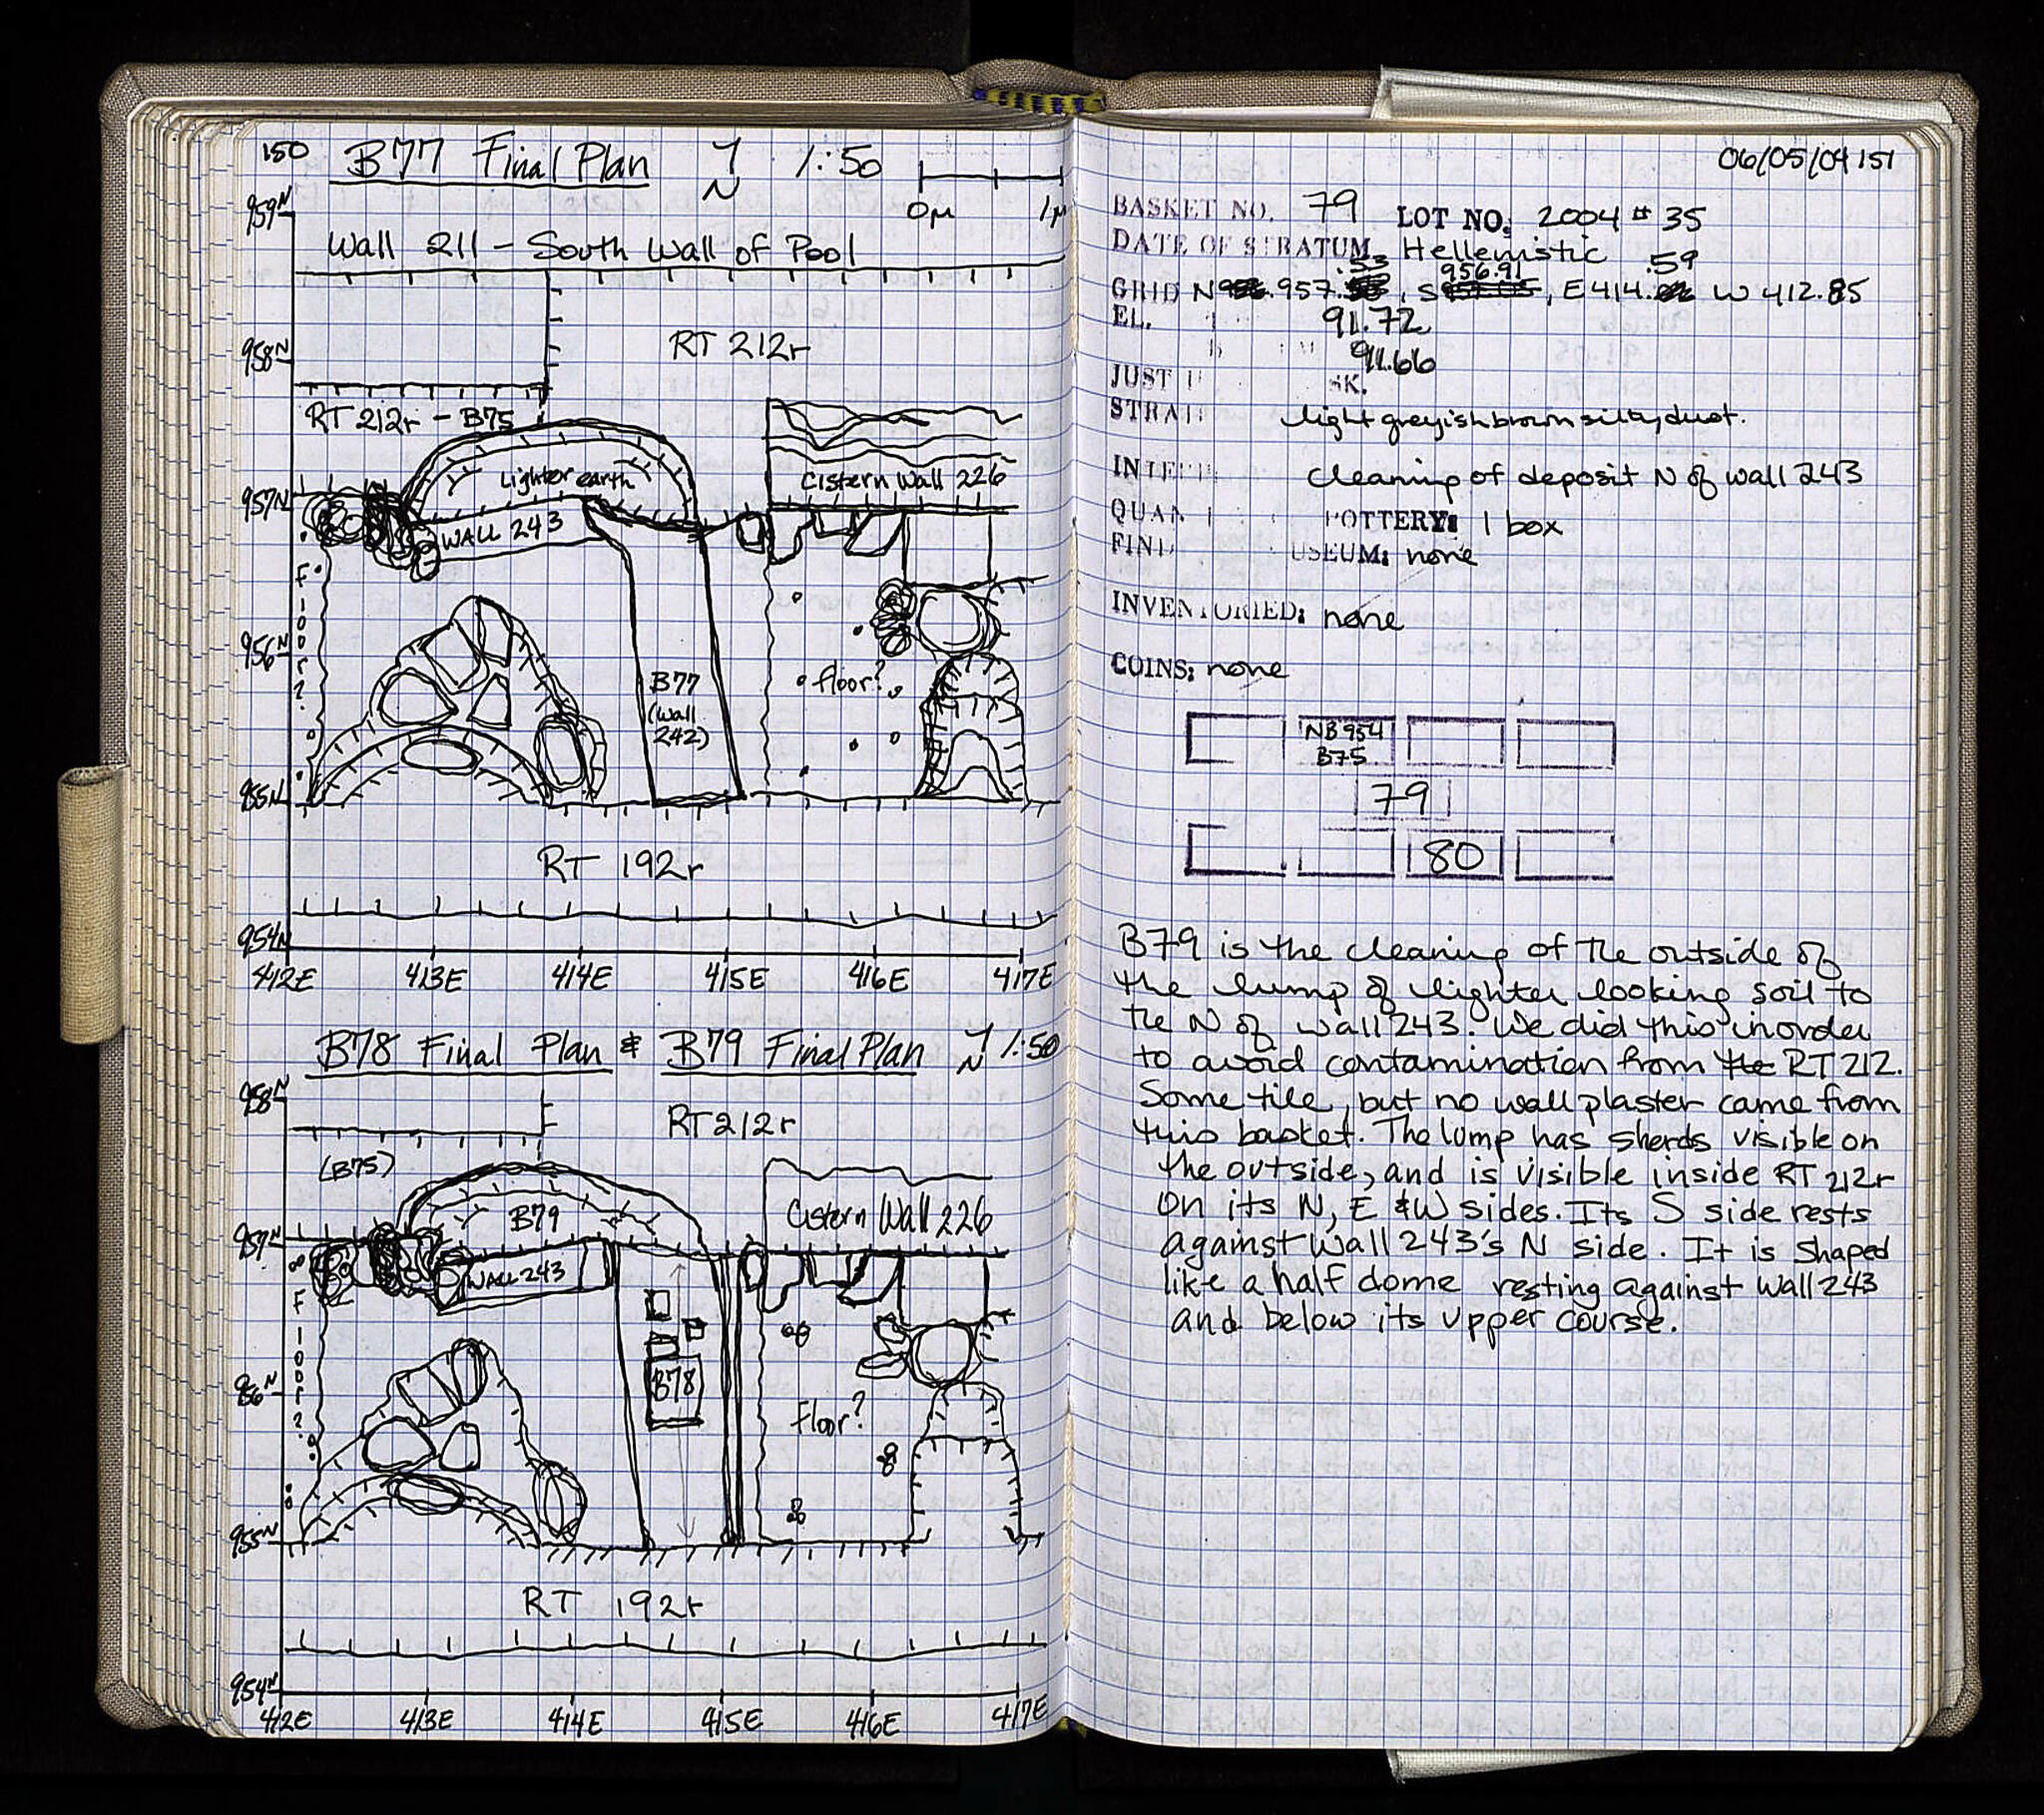 150 B77 Final Plan N 1:50
0m 1m
959N
Wall 211 - South Wall of Pool
958N
RT 212r
RT 212r - B75
Lighter earth
Cistern Wall 226
957N
WALL 243
Floor?
956N
B77
(wall
242)
floor?
955N
RT 192r
954N
412E 413E 414E 415E 416E 417E
B78 Final Plan & B79 Final Plan N 1:50
958N
RT 212r
(B75)
B79
Cistern Wall 226
957N
WALL 243
Floor?
B78
96N
Floor?
955N
RT 192r
954N
412E 413E 414E 415E 416E 417E
06/05/04 151
BASKET NO. 79 LOT NO: 2004 # 35
DATE OF STRATUM Hellenistic
.53 956.91 .59
GRID N 957. , S , E 414. W 412.85
EL. 91.72
91.66
JUST SK.
STRA light greyish brown silty dust.
INTE cleaning of deposit N of wall 243
QUAN POTTERY: 1 box
FIND USEUM: none
INVENTORIED: none
COINS: none
NB 954
B75
79
80
B79 is the cleaning of the outside of
the lump of lighter looking soil to
the N of wall 243. We did this in order
to avoid contamination from the RT 212.
Some tile, but no wall plaster came from
this basket. The lump has sherds visible on
the outside, and is visible inside RT 212r
on its N, E & W sides. Its S side rests
against Wall 243's N side. It is shaped
like a half dome resting against wall 243
and below its upper course.